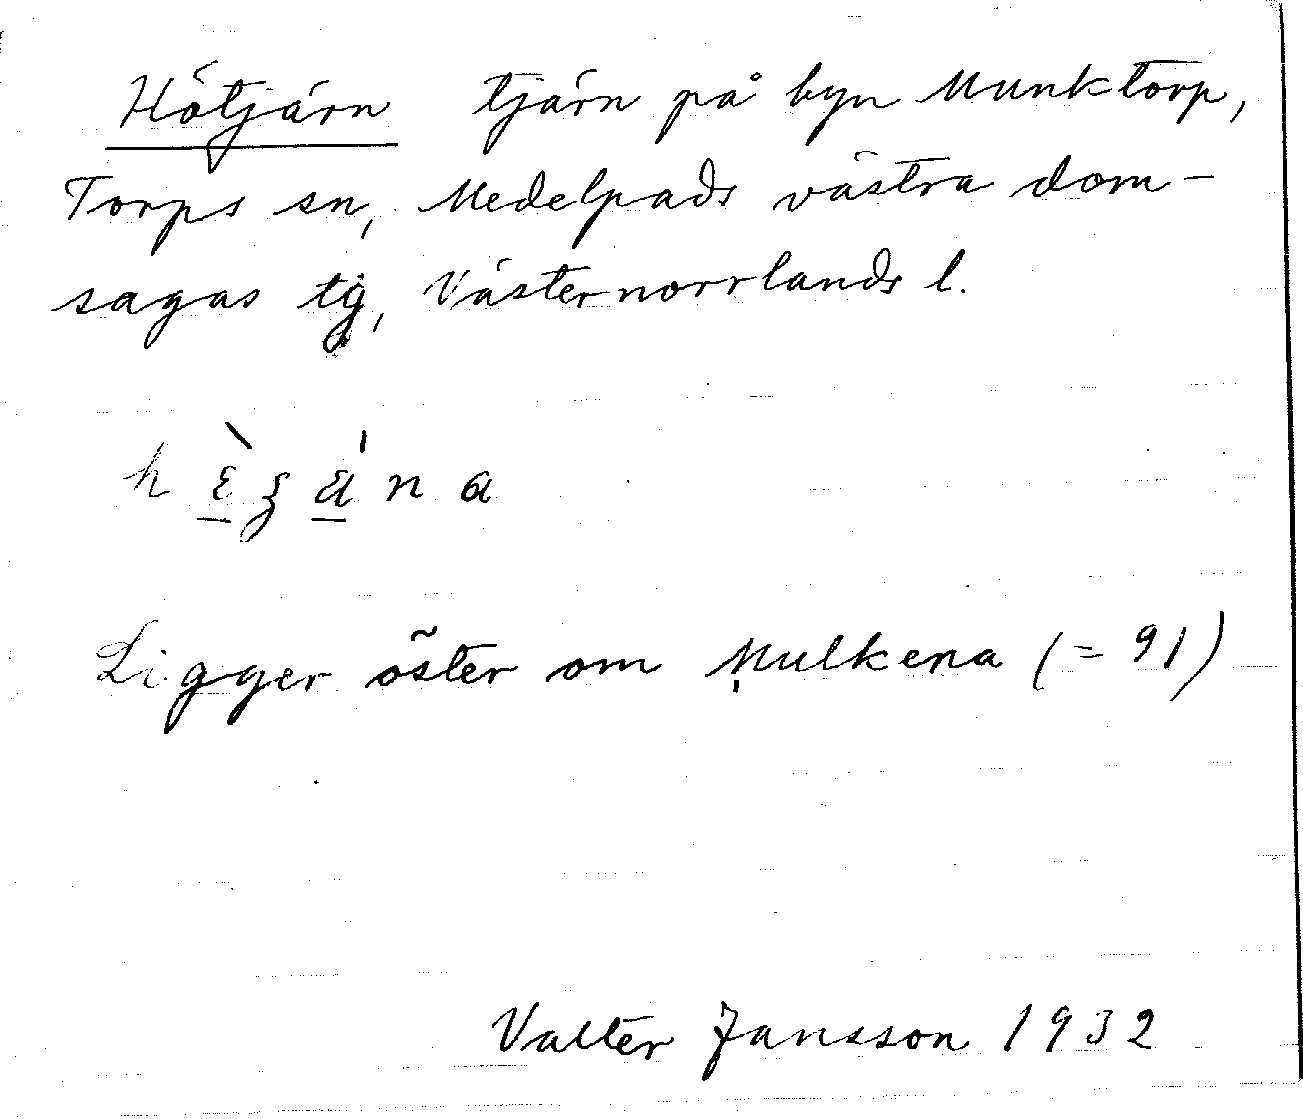 Hötjärn tjärn på byn Munktorp,
Torps sn, Medelpads västra dom-
sagas tg, Västernorrlands l.
Ligger öster om Mulkena (= 91)
Valter Jansson 1932